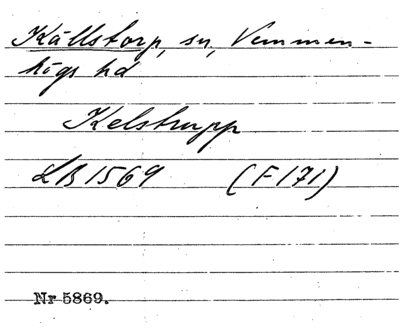 Källstorp, sn, Vemmen-
högs hd
Kelstrupp
LB 1569 (F 171)
Nr 5869.